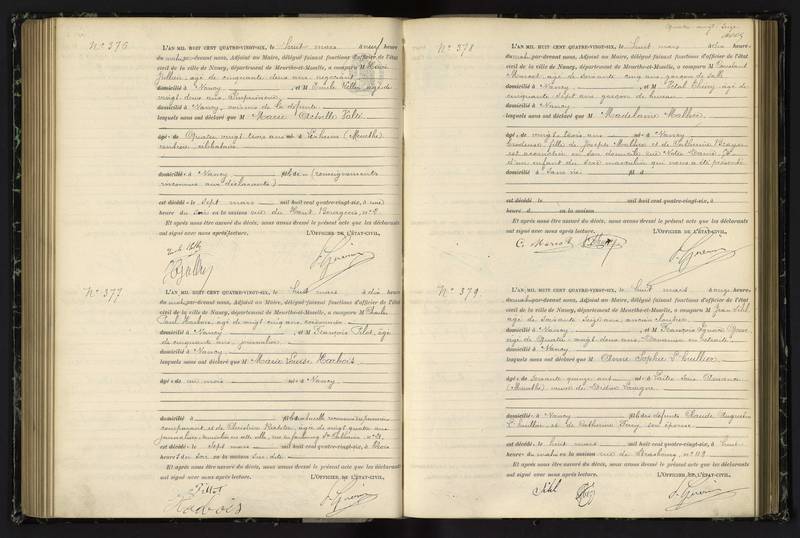 N° 376
L'AN MIL HUIT CENT QUATRE-VINGT-SIX, le huit mars à neuf heures
du matin par-devant nous, Adjoint au Maire, délégué faisant fonctions d'officier de l'état
civil de la ville de Nancy, département de Meurthe-et-Moselle, a comparu M
âgé de cinquante deux ans, négociant
domicilié à Nancy, et M Emile âgé de
vingt deux ans,
domicilié à Nancy, voisins de la défunte
lesquels nous ont déclaré que M Marie
âgé e de Quatre vingt trois ans né e à (Meurthe)
rentière célibataire
domicilié e à Nancy fille de (renseignements
inconnus aux déclarants)
est décédé e le sept mars mil huit cent quatre-vingt-six, à une
heure du soir en la maison rue du Haut Bourgeois, n°
Et après nous être assuré du décès, nous avons dressé le présent acte que les déclarants
ont signé avec nous après lecture. L'OFFICIER DE L'ÉTAT-CIVIL,
N° 377
L'AN MIL HUIT CENT QUATRE-VINGT-SIX, le huit mars à dix heures
du matin par-devant nous, Adjoint au Maire, délégué faisant fonctions d'officier de l'état
civil de la ville de Nancy, département de Meurthe-et-Moselle, a comparu M Charles
Paul Harbois, âgé de vingt cinq ans, cordonnier
domicilié à Nancy, et M François Pilot, âgé
de cinquante ans, journalier
domicilié à Nancy
lesquels nous ont déclaré que M Marie Louise Harbois
âgé e de un mois né e à Nancy
domicilié à fille naturelle reconnue du premier
comparant et de Christine âgée de vingt quatre ans
journalière, domiciliée en cette ville, rue du faubourg Ste Catherine, n°
est décédé e le sept mars mil huit cent quatre-vingt-six, à trois
heures du soir en la maison sus dite
Et après nous être assuré du décès, nous avons dressé le présent acte que les déclarants
ont signé avec nous après lecture. L'OFFICIER DE L'ÉTAT-CIVIL,
Pillot
Harbois
Quatre vingt seize
N° 378
L'AN MIL HUIT CENT QUATRE-VINGT-SIX, le huit mars à dix heures
du matin par-devant nous, Adjoint au Maire, délégué faisant fonctions d'officier de l'état
civil de la ville de Nancy, département de Meurthe-et-Moselle, a comparu M Constant
Marcot, âgé de soixante cinq ans, garçon de salle
domicilié à Nancy, et M Vital Thiery âgé de
cinquante sept ans garçon de bureau
domicilié à Nancy
lesquels nous ont déclaré que M Madeleine Mathis
âgé e de vingt trois ans né e à Nancy
brodeuse, fille de Joseph Mathis et de Catherine
est accouchée en son domicile rue Notre Dame,
d'un enfant du sexe masculin qui nous a été présenté
domicilié à sans vie fil d
est décédé le mil huit cent quatre-vingt-six, à
heure d en la maison
Et après nous être assuré du décès, nous avons dressé le présent acte que les déclarants
ont signé avec nous après lecture. L'OFFICIER DE L'ÉTAT-CIVIL,
C. Marcot
N° 379
L'AN MIL HUIT CENT QUATRE-VINGT-SIX, le huit mars à onze heures,
du matin par-devant nous, Adjoint au Maire, délégué faisant fonctions d'officier de l'état
civil de la ville de Nancy, département de Meurthe-et-Moselle, a comparu M Jean Sihl
âgé de soixante seize ans, ancien
domicilié à Nancy, et M François
âgé de Quatre vingt deux ans, en retraite
domicilié à Nancy
lesquels nous ont déclaré que M Anne Sophie L'huillier
âgé e de soixante quinze ans née à Laître sous Amance
(Meurthe) veuve de Didier
domicilié e à Nancy fille des défunts Claude Augustin
L'huillier et de Catherine son épouse
est décédé e le huit mars mil huit cent quatre-vingt-six, à huit
heures du matin en la maison rue de Strasbourg, n° 119
Et après nous être assuré du décès, nous avons dressé le présent acte que les déclarants
ont signé avec nous après lecture. L'OFFICIER DE L'ÉTAT-CIVIL,
Sihl